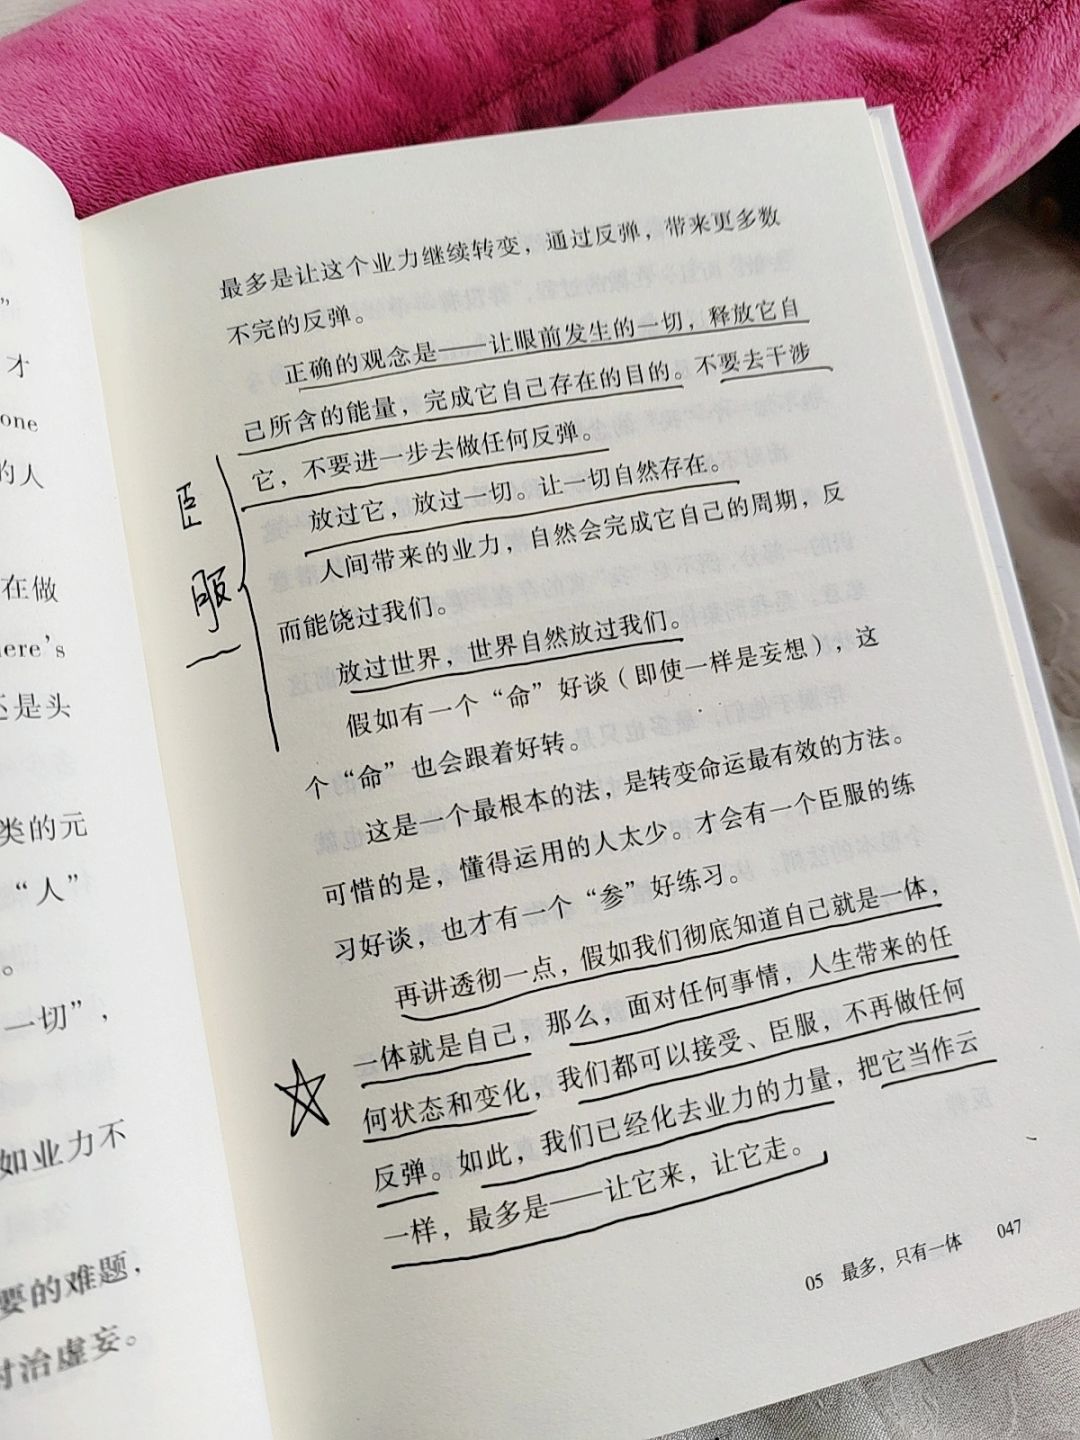 ”
才
one
的人
在做
here’s
还是头
类的元
“人”
。
一切”，
如业力不
要的难题，
对治虚妄。
最多是让这个业力继续转变，通过反弹，带来更多数
不完的反弹。
正确的观念是——让眼前发生的一切，释放它自
己所含的能量，完成它自己存在的目的。不要去干涉
它，不要进一步去做任何反弹。
放过它，放过一切。让一切自然存在。
人间带来的业力，自然会完成它自己的周期，反
而能饶过我们。
放过世界，世界自然放过我们。
假如有一个“命”好谈（即使一样是妄想），这
个“命”也会跟着好转。
这是一个最根本的法，是转变命运最有效的方法。
可惜的是，懂得运用的人太少。才会有一个臣服的练
习好谈，也才有一个“参”好练习。
再讲透彻一点，假如我们彻底知道自己就是一体，
一体就是自己，那么，面对任何事情，人生带来的任
何状态和变化，我们都可以接受、臣服，不再做任何
反弹。如此，我们已经化去业力的力量，把它当作云
一样，最多是——让它来，让它走。
臣
服
05 最多，只有一体 047